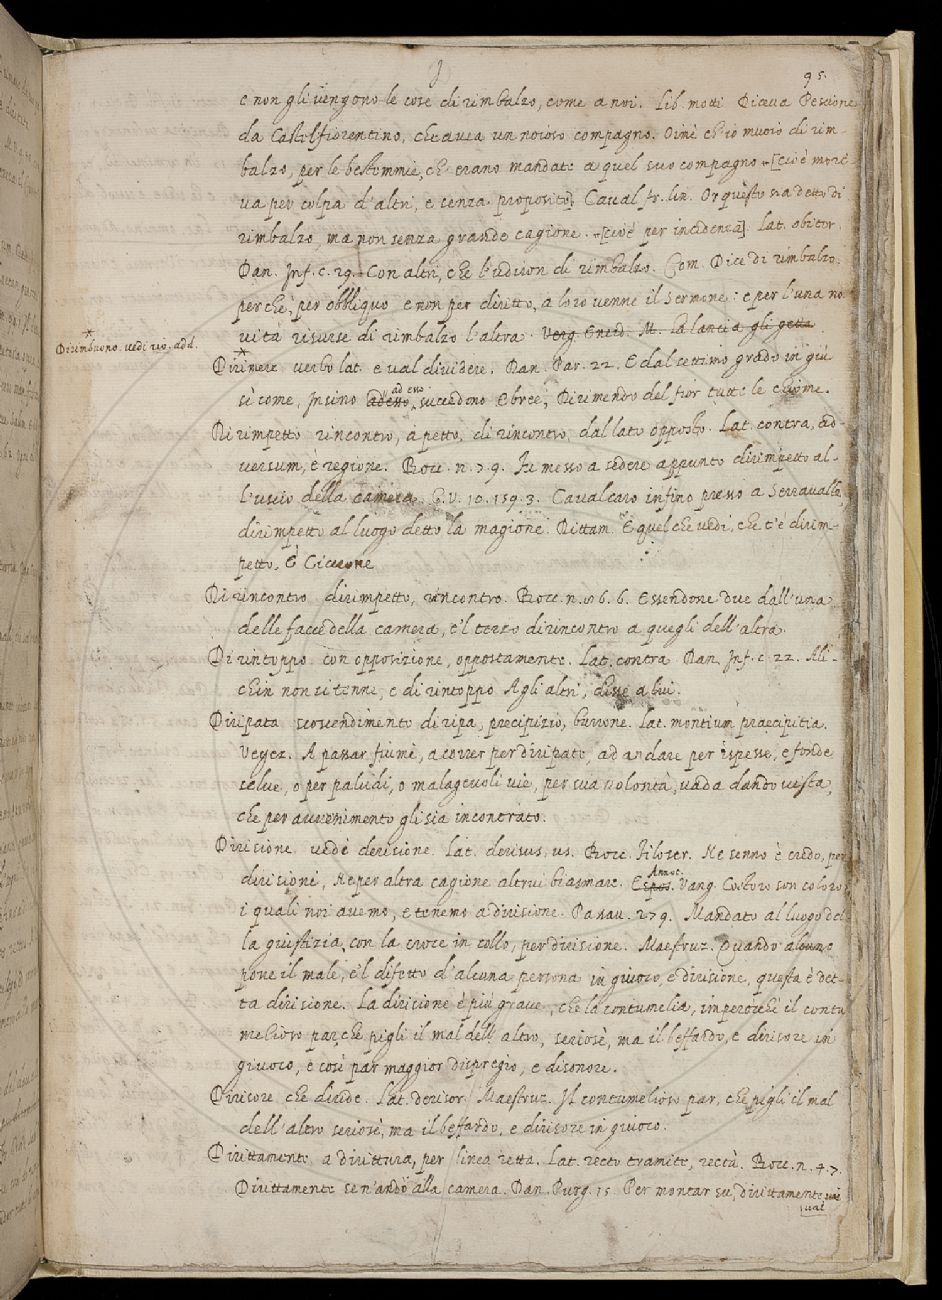 95.
e non gli vengono le cose di rimbalzo, come a noi. Lib. motti. Diceva Pescione
da Castelfiorentino, che avea un noioso compagno. Oimè ch'io muoio di rim-
balzo, per le bestemmie, ch'erano mandate a quel suo compagno [cioè mori-
va per colpa d'altri, e senza proposito]. Caval. fr. lin. Or questo sia detto di
rimbalzo, ma non senza grande cagione. [cioè per incidenza] Lat. obiter.
Dan. Inf. c. 29. Con altri, che l'udiron di rimbalzo. Com. Dice di rimbalzo,
perchè, per obbliquo e non per diritto, a loro venne il Sermone: e per l'una no
vità risurse di rimbalzo l'altra. Verg. Eneid. M. La lancia gli getta
* Dirimbuono. vedi rio. add.
* Dirimere verbo lat. e val dividere. Dan. Par. 22. E dal settimo grado in giù
sì come, Insino adesso ad esso, succedono Ebree, Dirimendo del fior tutte le chiome.
Dirimpetto rincontro, a petto, di rincontro, dal lato opposto. Lat. contra, ad-
versum, è regione. Bocc. n. 79. Fu messo a sedere appunto dirimpetto al-
l'uscio della camera. G. V. 10. 159. 3. Cavalcaro infino presso a Serravalle,
dirimpetto al luogo detto la magione. Dittam. E quel che vedi, che t'è dirim-
petto, È Cicerone
Di rincontro dirimpetto, rincontro. Bocc. n. 6. 6. Essendone due dall'una
delle facce della camera, e'l terzo di rincontro a quegli dell'altra.
Di rintoppo con opposizione, oppostamente. Lat. contra. Dan. Inf. c. 22. Ali-
chin non si tenne, e di rintoppo Agli altri, disse a lui.
Diripata scoscendimento di ripa, precipizio, burrone. Lat. montium praecipitia.
Vegez. A passar fiumi, a correr per diripate, ad andare per ispesse, e fonde
selve, o per paludi, o malagevoli vie, per sua volontà, vada dando vista,
che per avvenimento gli sia incontrato.
Dirisione vedi derisione. Lat. derisus, us. Bocc. Filoser. Nè senno è credo, per
dirisioni, nè per altra cagione altrui biasmare. Espos. Annot. Vang. Costoro son coloro
i quali noi avemo, e tenemo a dirisione. Passav. 279. Mandato al luogo del-
la giustizia, con la croce in collo, per dirisione. Maestruz. Quando alcuno
pone il male, e'l difetto d'alcuna persona in giuoco, e dirisione, questa è det-
ta dirisione. La dirisione è più grave, che la contumelia, imperocchè il contu
melioso par che pigli il mal dell'altro, seriosè, ma il beffardo, e dirisore in
giuoco, e così par maggior dispregio, e disonore.
Dirisore. che diride. Lat. derisor. Maestruz. Il contumelioso par, che pigli il mal
dell'altro seriosè, ma il beffardo, e dirisore in giuoco.
Dirittamente a dirittura, per linea retta. Lat. recto tramite, rectà. Bocc. n. 47.
Dirittamente se n'andò alla camera. Dan. Purg. 15. Per montar su, dirittamente vai
vai